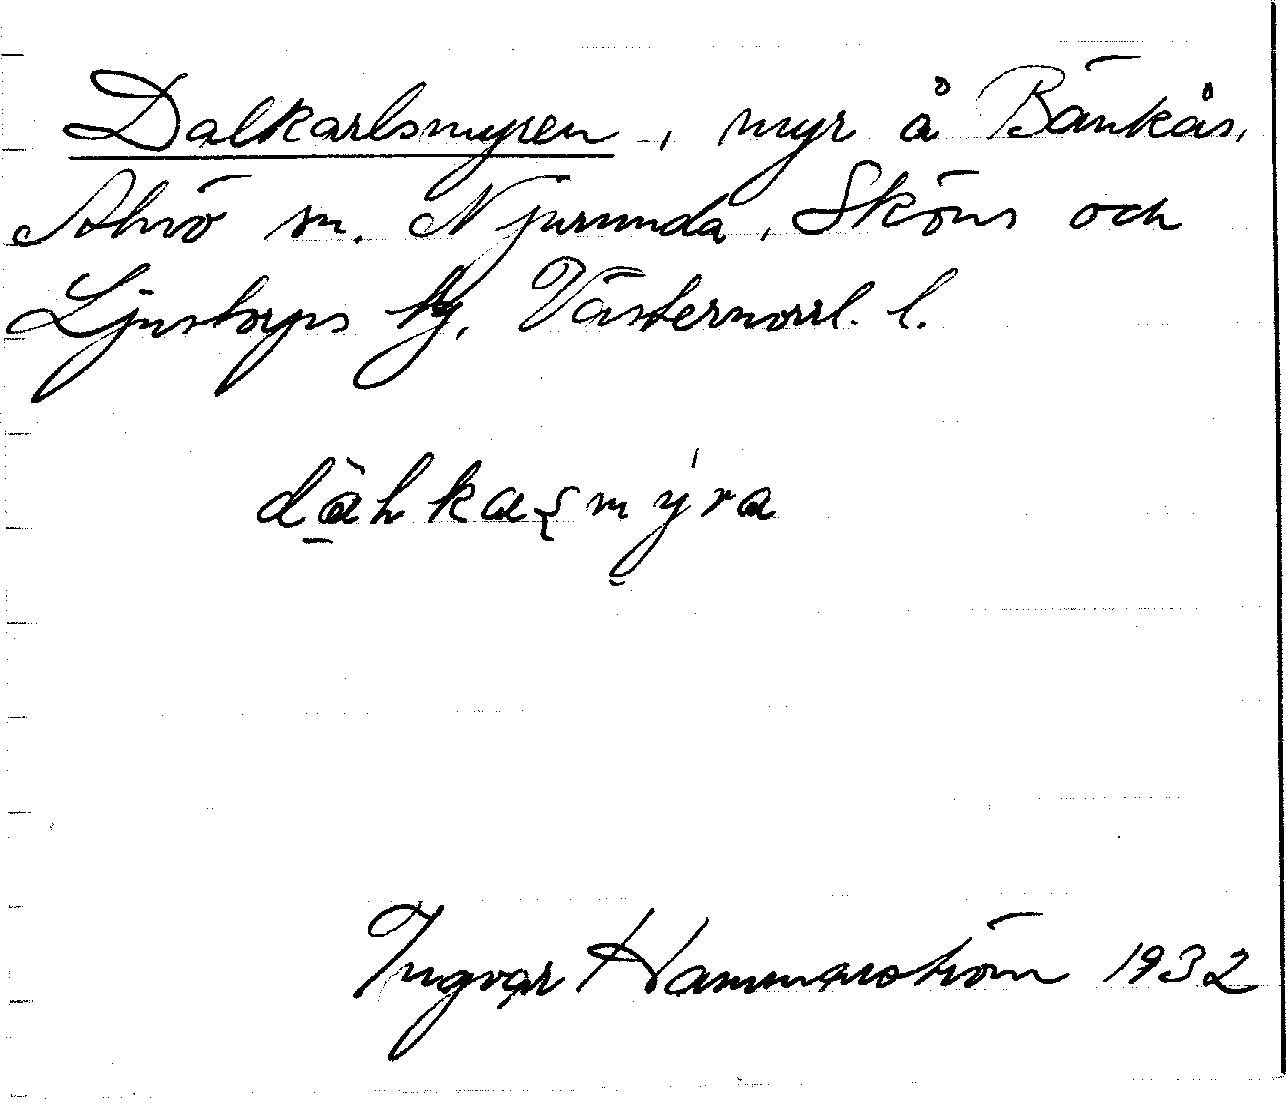 Dalkarlsmyren, myr å Bänkås,
Alnö sn. Njurunda, Sköns och
Ljustorps tg, Västernorrl. l.
dàhkaʂmýra
Ingvar Hammarström 1932